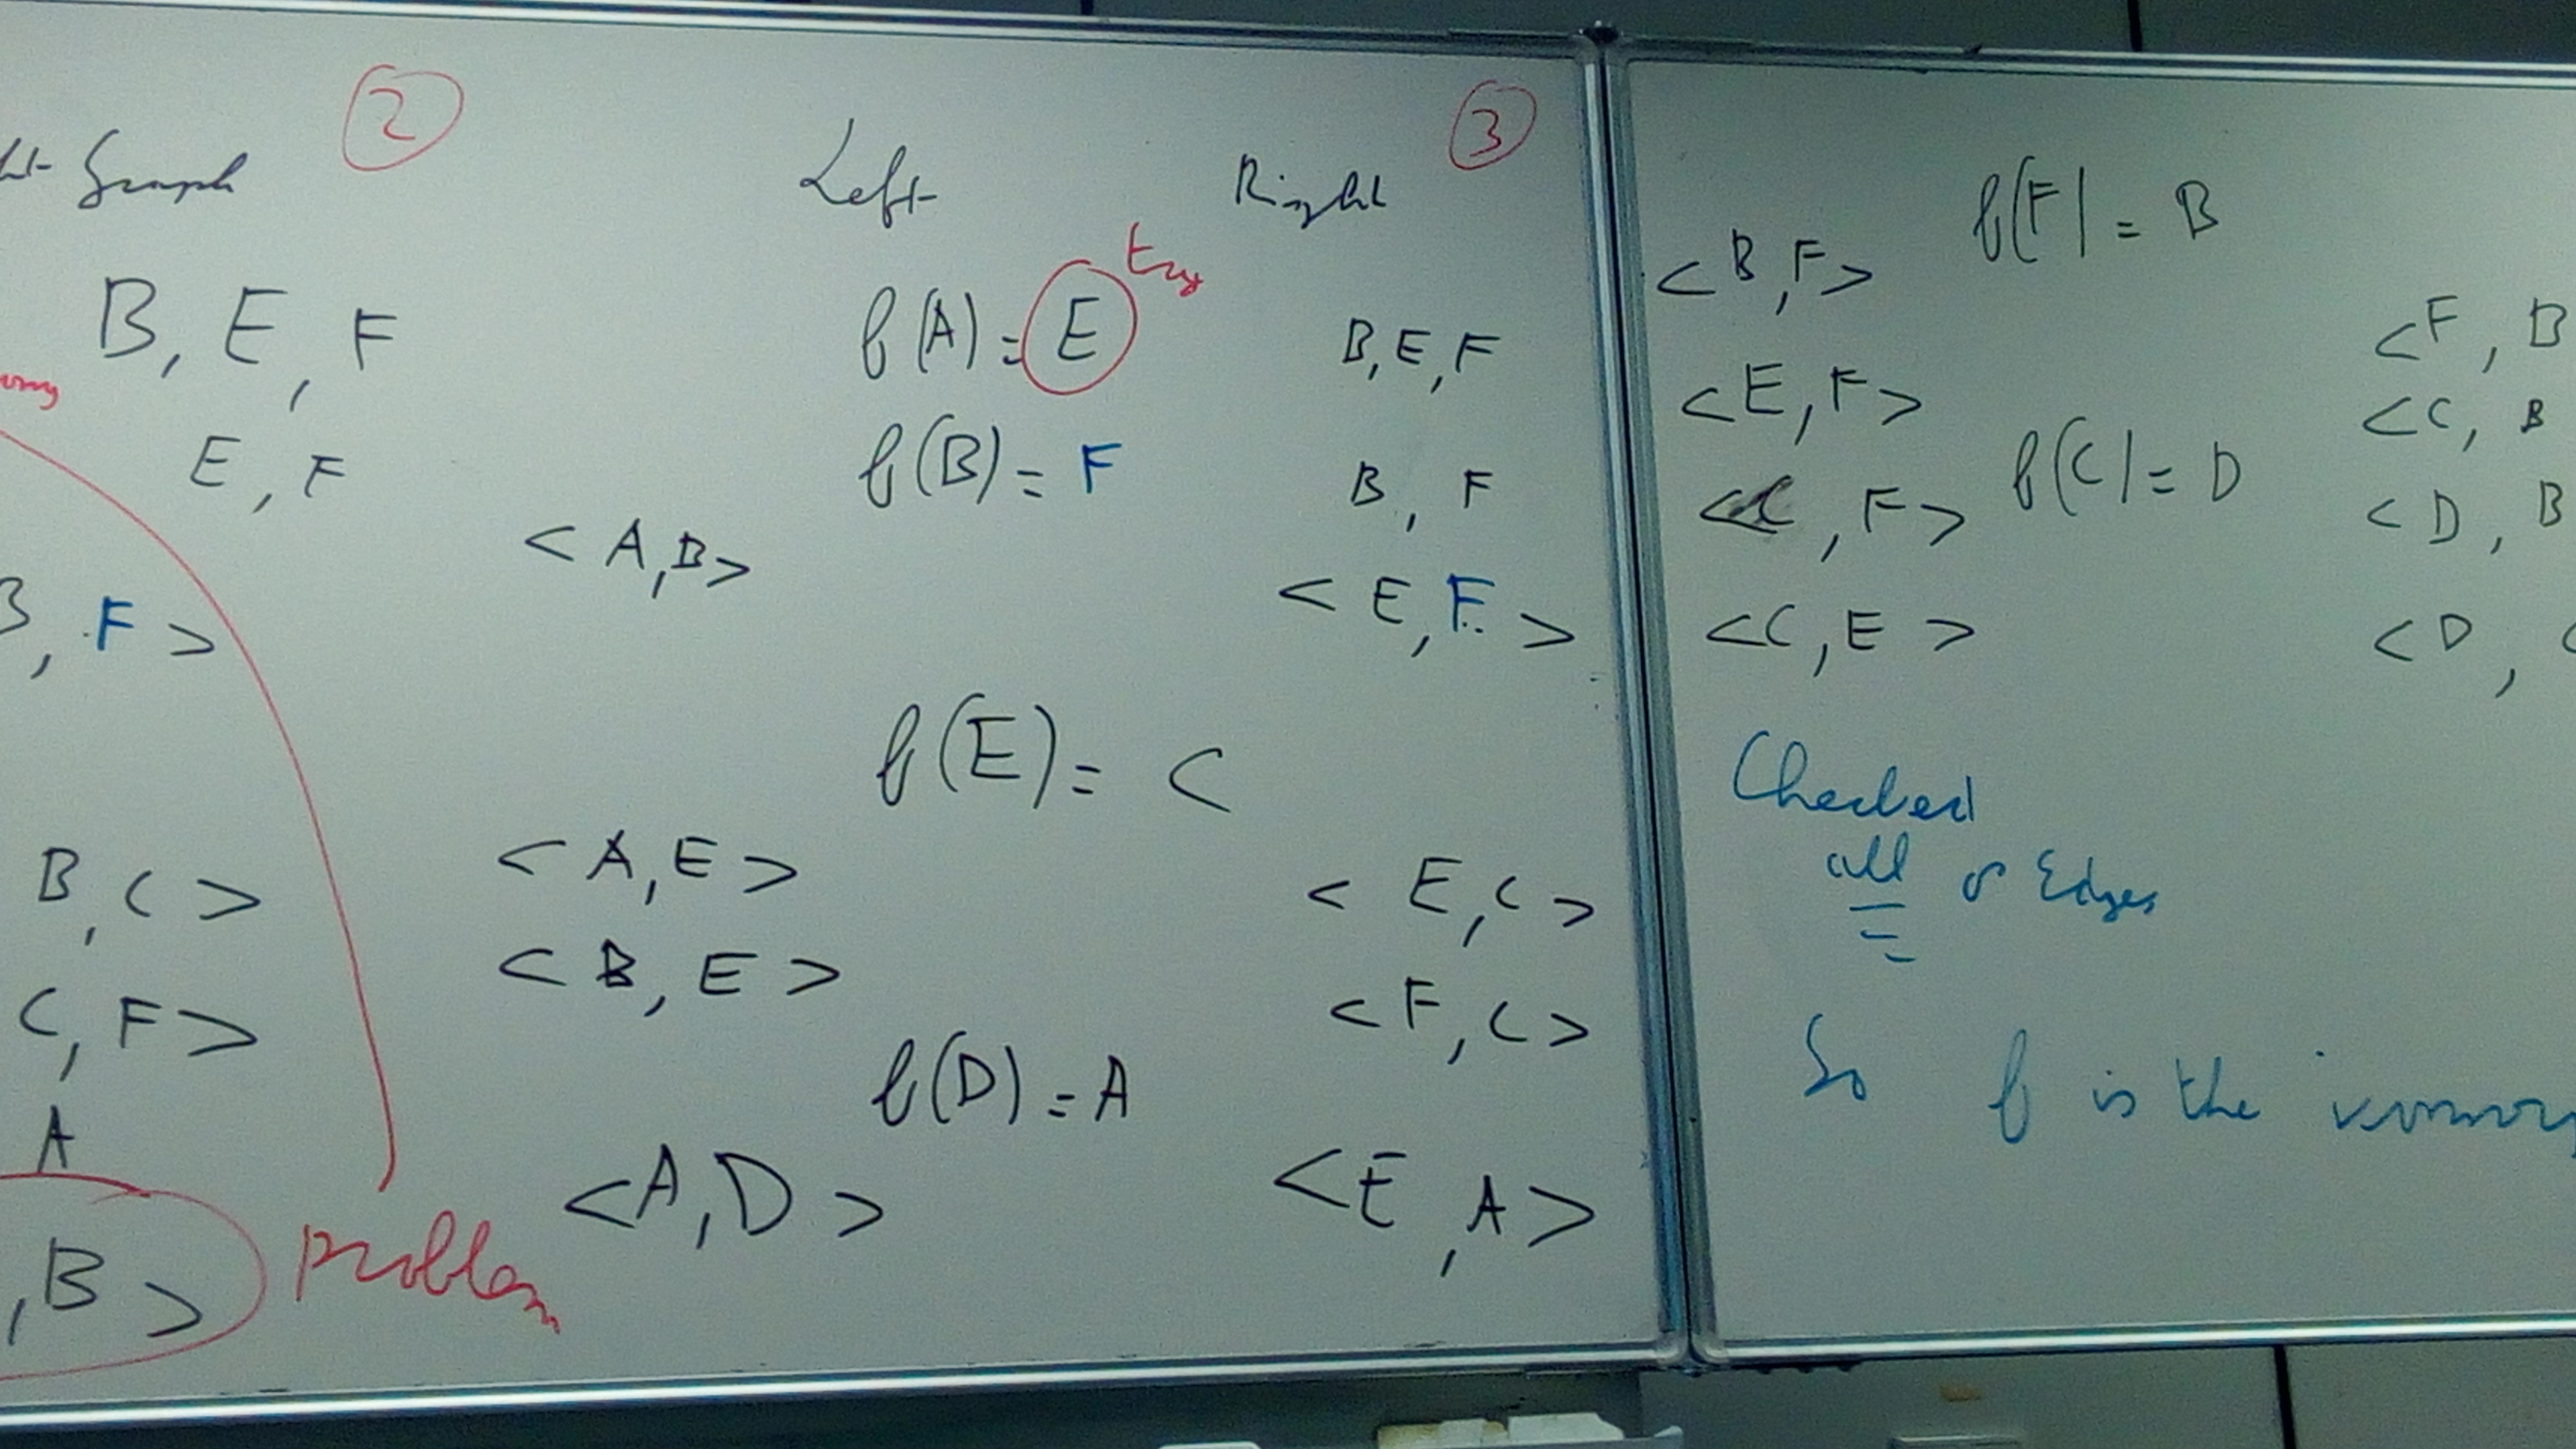 Graph
2
B, E, F
E, F
, F >
B, C >
C, F >
A
, B >
problem
Left
Right
3
f(A) = E
try
B, E, F
f(B) = F
B, F
< A, B >
< E, F >
f(E) = C
< A, E >
< E, C >
< B, E >
< F, C >
f(D) = A
< A, D >
< E, A >
f(F) = B
< B, F >
< F, B
< E, F >
< C, B
f(C) = D
< C, F >
< D, B
< C, E >
< D,
Checked
all 8 Edges
So f is the